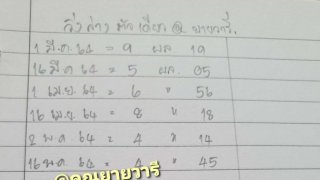 วิ่งล่าง ตัวเดียว @ ยายวารี.
1 มี.ค 64 = 9 ผล 19
16 มี.ค 64 = 5 ผล. 05
1 เม.ย 64 = 6 " 56
16 เม.ย. 64 = 8 " 18
2 พ.ค 64 = 4 " 14
16 พ.ค. 64 = 4 " 45
@คุณยายวารี